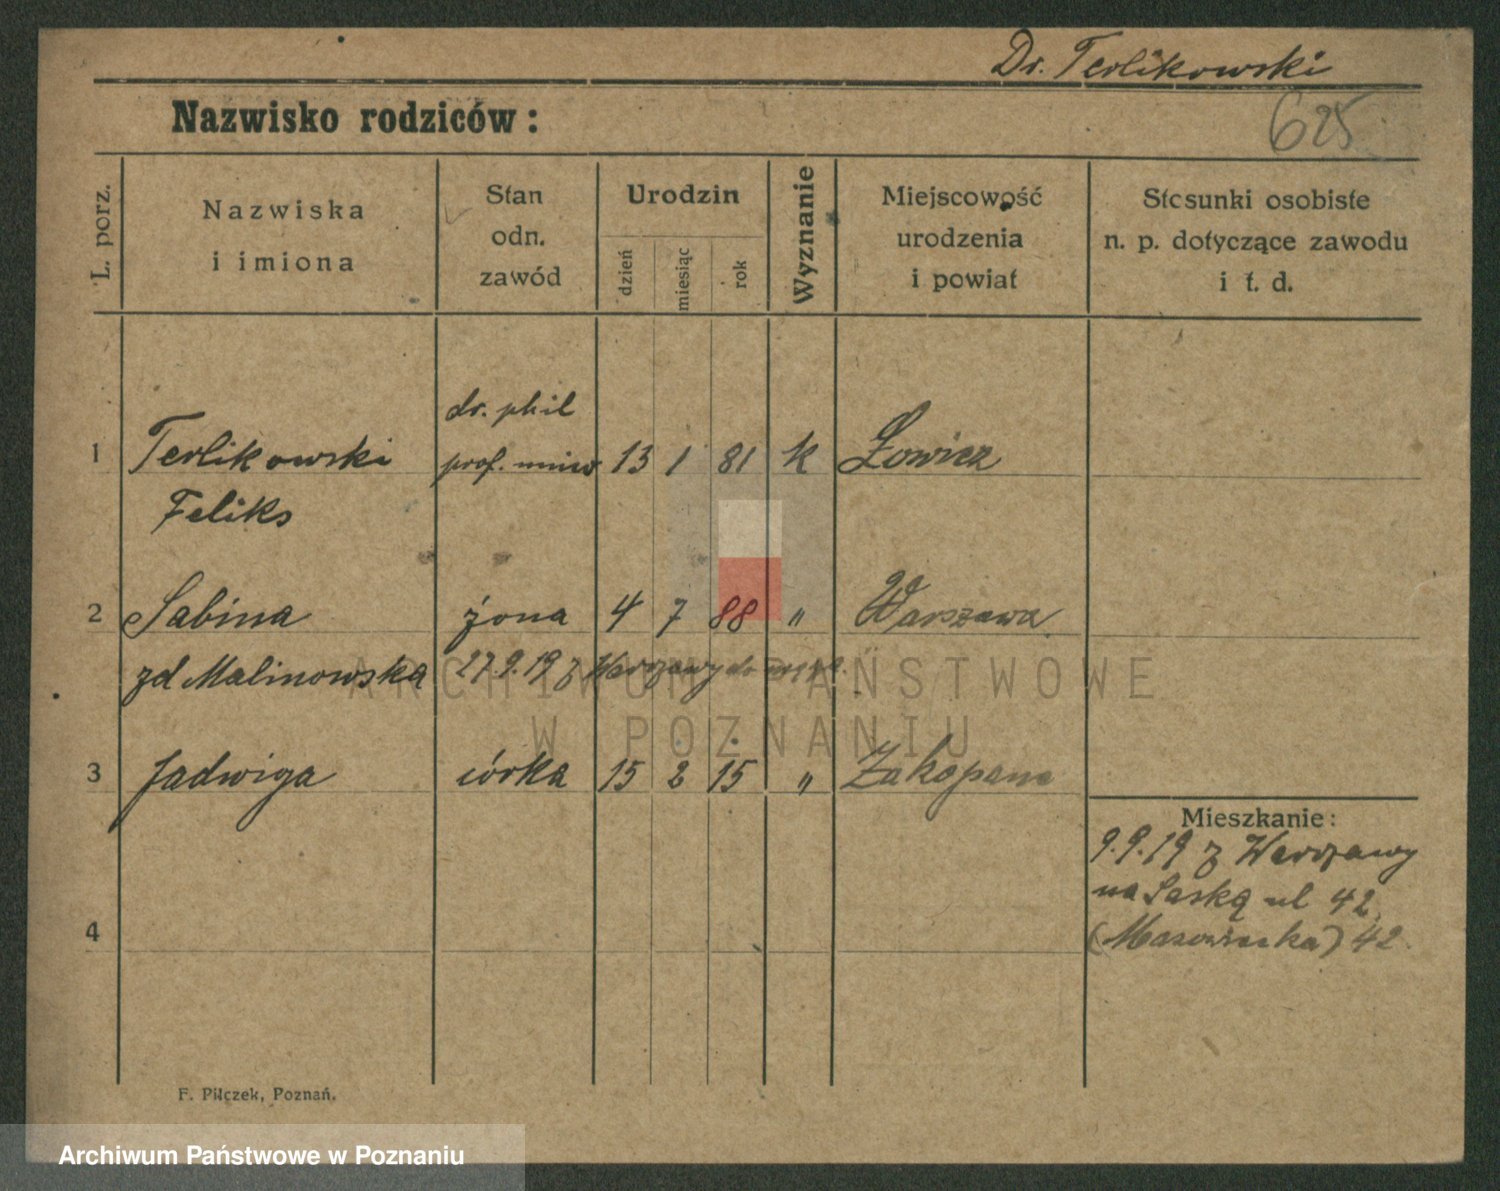 Dr. Terlikowski
Nazwisko rodziców:
625
L. porz.
Nazwiska
i imiona
Stan
odn.
zawód
Urodzin
dzień
miesiąc
rok
Wyznanie
Miejscowość
urodzenia
i powiat
Stosunki osobiste
n. p. dotyczące zawodu
i t. d.
dr. phil
1 Terlikowski prof. uniw 13 1 81 k Łowicz
Feliks
2 Sabina żona 4 7 88 " Warszawa
zd Malinowska 27.9.19 z Warszawy do
ARCHIWUM PAŃSTWOWE
W POZNANIU
3 Jadwiga córka 15 2 15 " Zakopane
Mieszkanie:
9.9.19 z Warszawy
na Saską ul 42
4
(Mazowiecka) 42
F. Pilczek, Poznań.
Archiwum Państwowe w Poznaniu